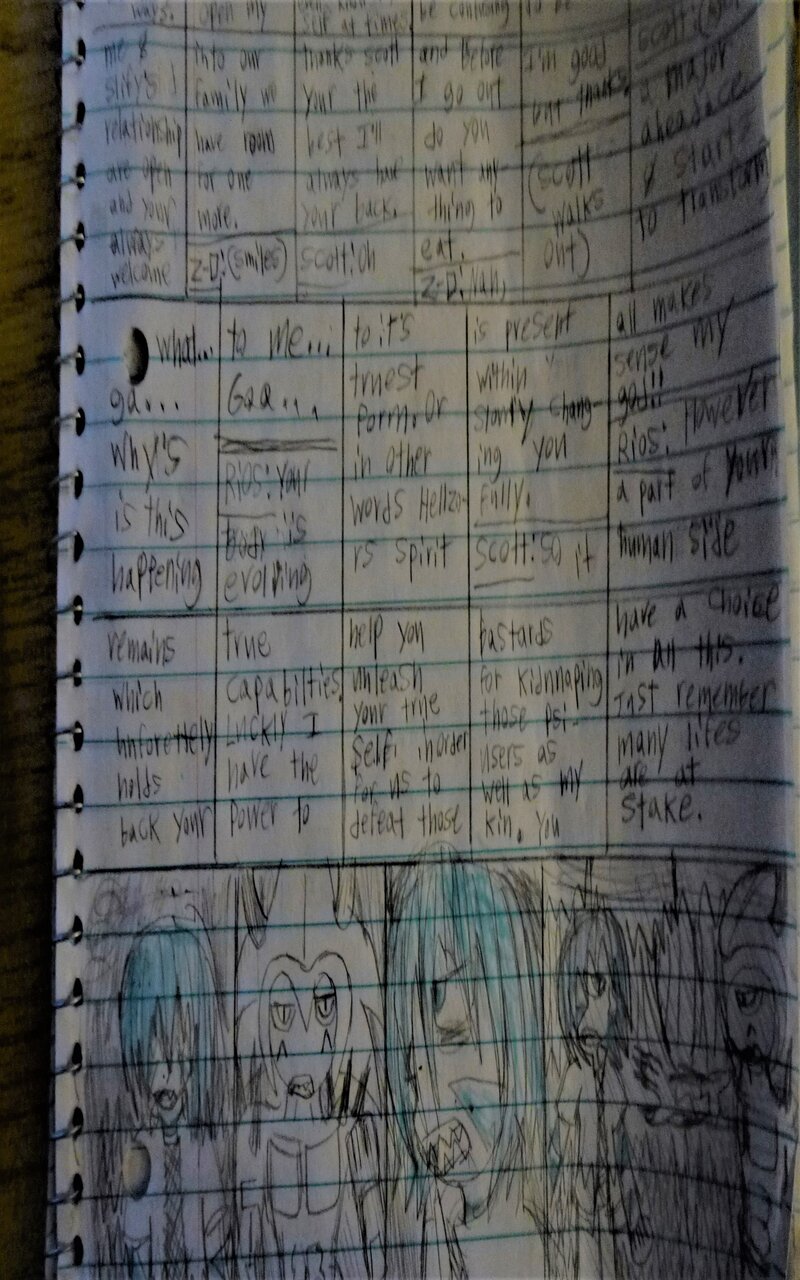 ways.
me &
relationship
are open
and your
always
welcome
open my
into our
family we
have room
for one
more.
Z-D:(smiles)
self at times
thanks scott
your the
best I'll
always have
your back.
scott:Oh
be
and before
I go out
do you
want any
thing to
eat.
Z-D:Nah,
to be
I'm good
but thanks.
(scott
walks
out)
scott:
a major
aheadace
& starts
to transform
what...
ga...
Why's
is this
happening
to me...
Gaa...
RIOS: Your
body is
evolving
to it's
truest
Form. Or
in other
words Hellzo-
rs spirit
is present
within
slowly chang-
ing you
Fully.
Scott: So it
all makes
sense my
god!!
RIOS: However
a part of your
human side
remains
which
unfortetlely
holds
back your
true
capabilties.
Luckly I
have the
power to
help you
unleash
your true
self inorder
for us to
defeat those
bastards
for kidnaping
those psi-
users as
well as my
kin. You
have a choice
in all this.
Just remember
many lifes
are at
stake.